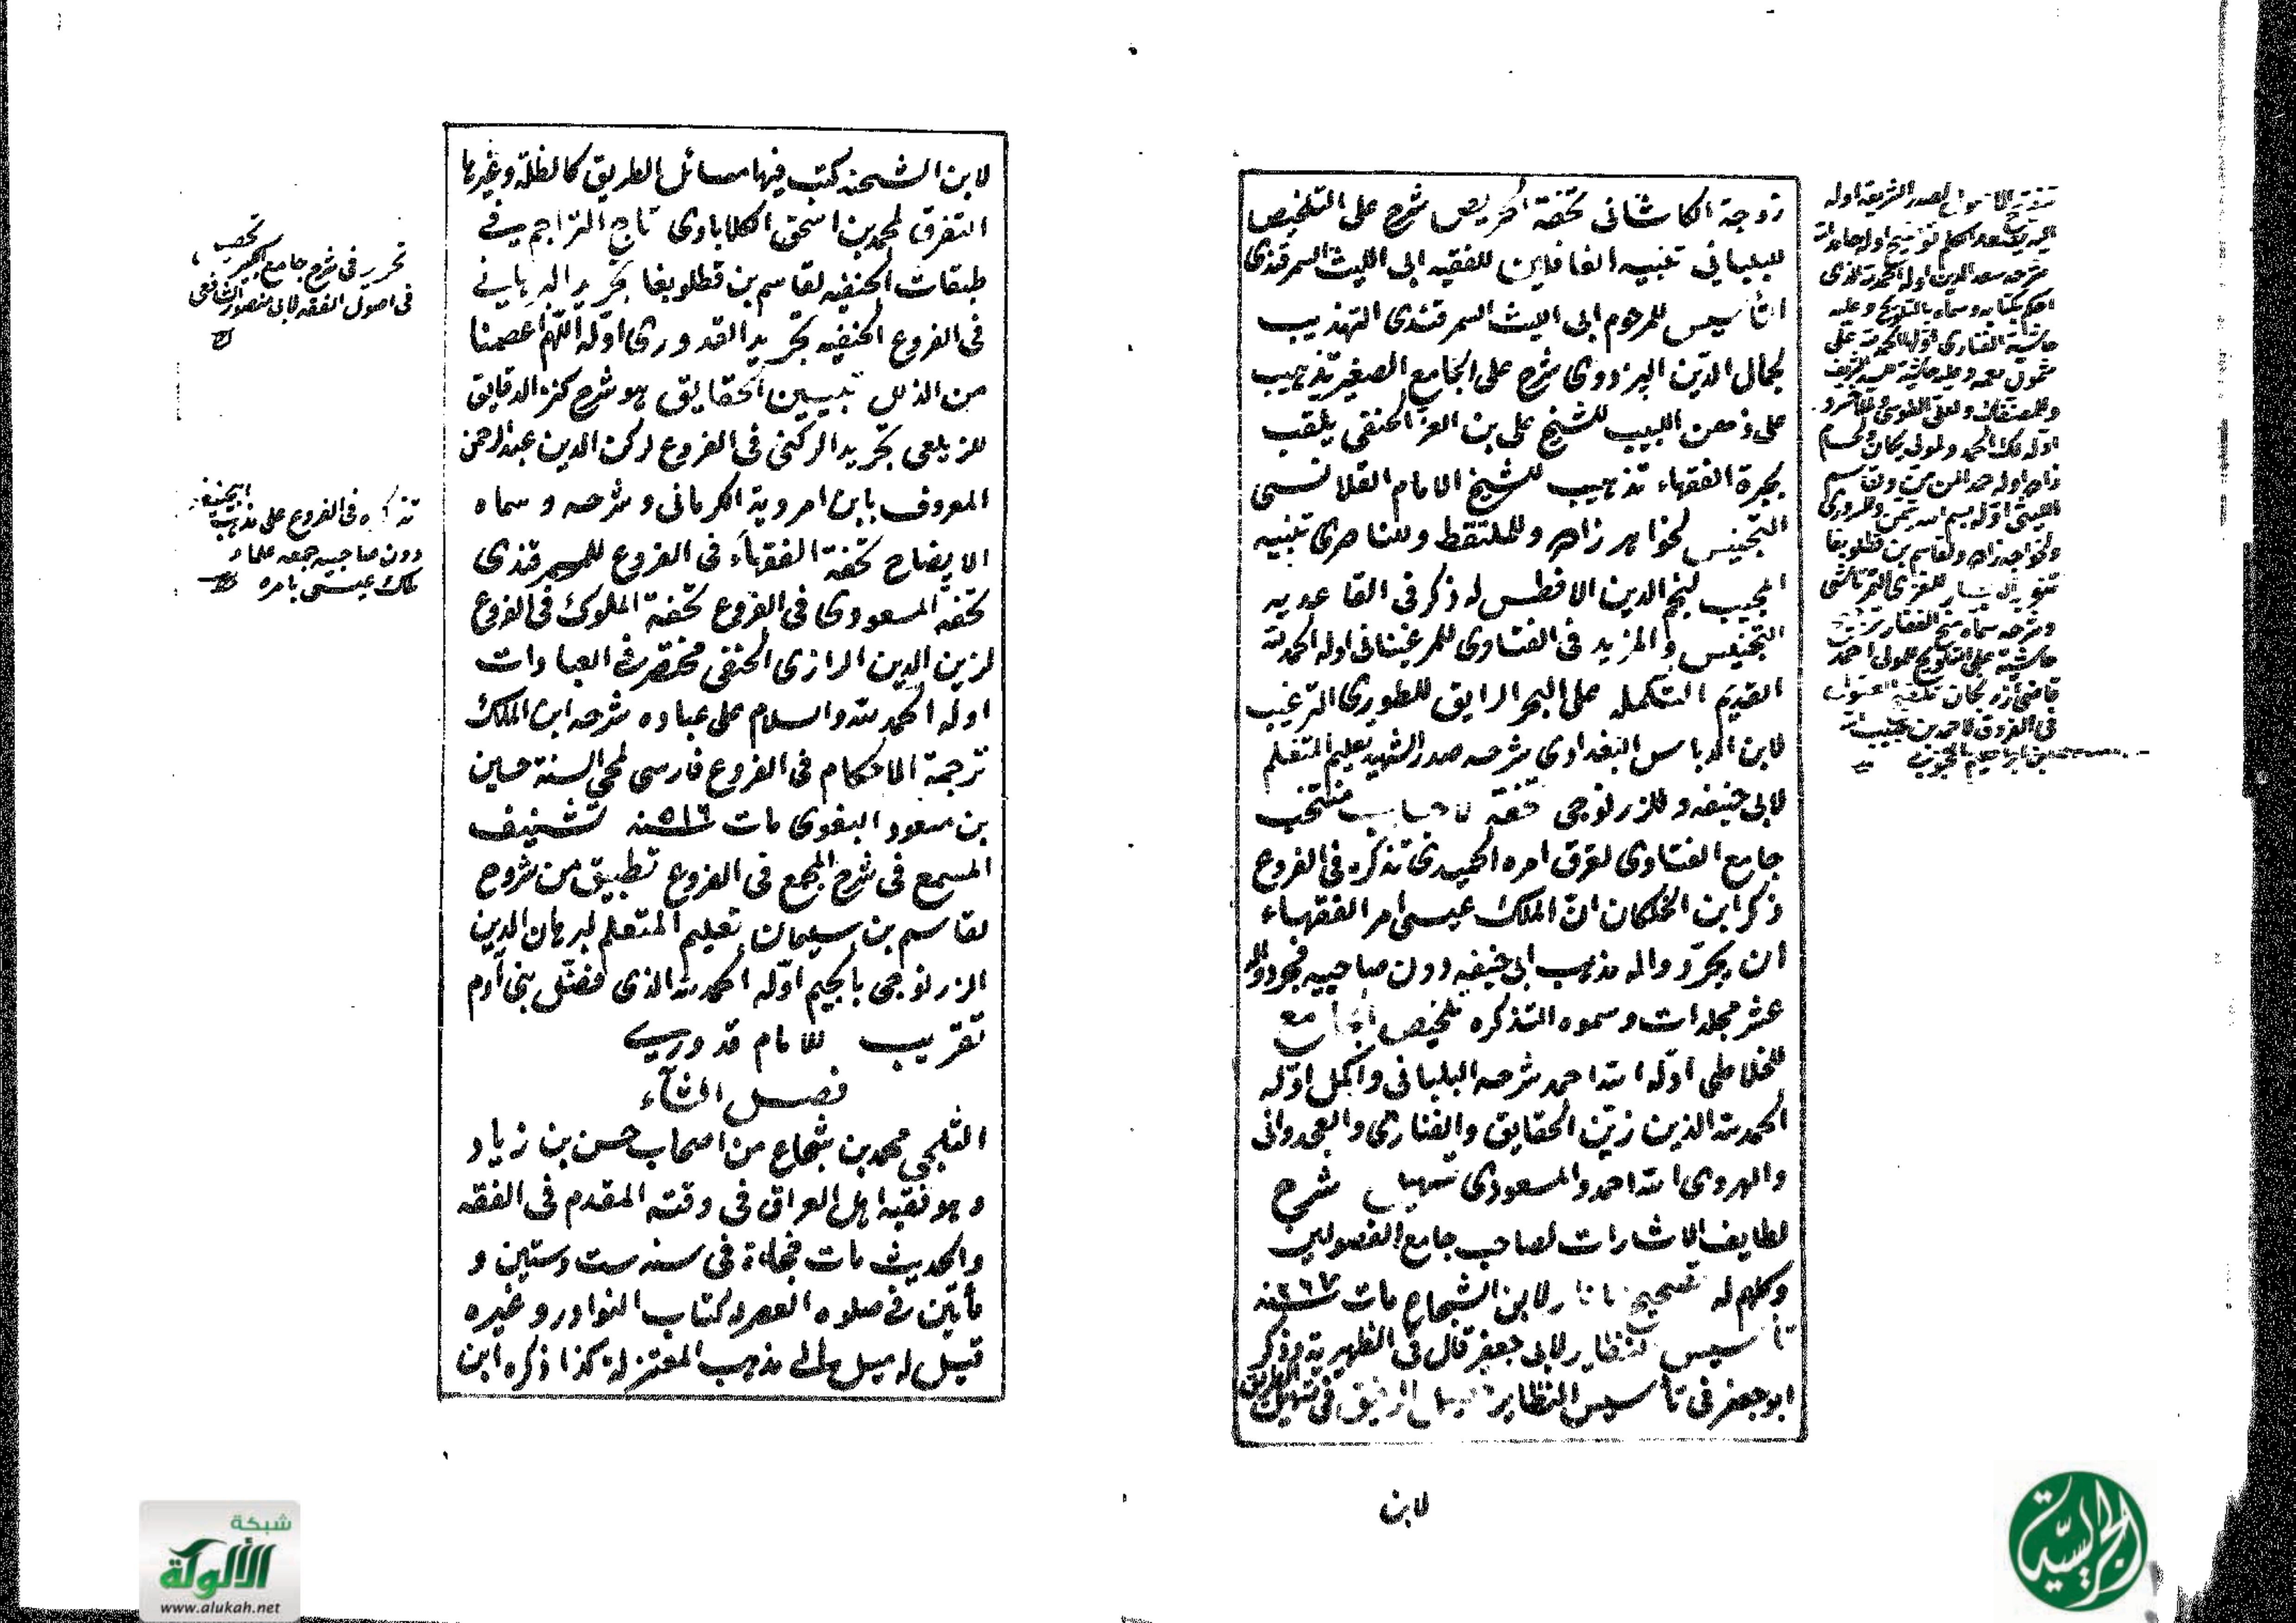 زوجة الكاشانى تحفة الحريص شرح على التلخيص
للبلبانى تنبيه الغافلين للفقيه ابى الليث السمرقندى
التأسيس للمرحوم ابى الليث السمرقندى التهذيب
لجمال الدين البزدوى شرح على الجامع الصغير تذهيب
على ذهن اللبيب للشيخ على بن العز الحنفى يلقب
بحيرة الفقهاء تذهيب للشيخ الامام القلانسى
التجنيس لخواهر زاده وللملتقط وللناصرى تنبيه
المجيب لنجم الدين الافطس له ذكر فى القاعديه
التجنيس والمزيد فى الفتاوى للمرغينانى اوله الحمد لله
القديم التكمله على البحر الرايق للطورى الترغيب
لابن الدباس البغدادى شرحه صدر الشهيد تعليم المتعلم
لابى حنيفه وللزرنوجى تحفة الاحباب منتخب
جامع الفتاوى لعرق امره الحميدى تذكره فى الفروع
ذكر ابن الخلكان ان الملك عيسى امر الفقهاء
ان يجردوا له مذهب ابى حنيفه دون صاحبيه فجردوا له
عشر مجلدات وسموه التذكره تلخيص الجامع
للخلاطى اوله الله احمد شرحه البلبانى واكمل اوله
الحمد لله الذين زين الحقايق والفنارى والعجدوانى
والهروى الله احمد والمسعودى تسهيل شرح
لطايف الاشارات لصاحب جامع الفصولين
وكلهم له تصحيح لابن الشجاع مات سنه
تأسيس النظاير لابى جعفر قال فى الظهيرية وذكر
ابو جعفر فى تأسيس النظاير الرفيق فى تسهيل الطريق
لابن
تنقيح الاصول لصدر الشريعة اوله
اليه يصعد الكلم توضيح اوله حامدا لله
شرحه سعد الدين اوله الحمد لله الذى
احكم بكتابه وسماه بالتلويح وعليه
حاشية الفنارى اولها الحمد لله على
وشرحه سماه منح الغفار
حاشية على التلويح للمولى احمد
فى الفروق لاحمد بن عبيد الله
بن ابراهيم المحبوبى
لابن الشحنه كتب فيها مسائل الطريق كالظلة وغيرها
التفرق لمحمد بن اسحق الكلابادى تاج التراجم فى
طبقات الحنفيه لقاسم بن قطلوبغا تجريد البرهانى
فى الفروع الحنفيه تجريد القدورى اوله اللهم اعصمنا
من الذلل تبيين الحقايق هو شرح كنز الدقايق
للزيلعى تجريد الركنى فى الفروع لركن الدين عبد الرحمن
المعروف بابن امروية الكرمانى وشرحه وسماه
الايضاح تحفة الفقهاء فى الفروع للسمرقندى
تحفة المسعودى فى الفروع تحفة الملوك فى الفروع
لزين الدين الرازى الحنفى مختصر فى العبادات
اوله الحمد لله والسلام على عباده شرحه ابن الملك
ترجمة الاحكام فى الفروع فارسى لمحى السنة حسين
بن مسعود البغوى مات سنه ٥١٦ تشنيف
المسمع فى شرح المجمع فى الفروع تطبيق من شروح
لقاسم بن سليمان تعليم المتعلم لبرهان الدين
الزرنوجى بالجيم اوله الحمد لله الذى فضل بنى آدم
تقريب للامام قدورى
فصل الثآء
الثلجى محمد بن شجاع من اصحاب حسن بن زياد
وهو فقيه اهل العراق فى وقته المقدم فى الفقه
والحديث مات فجاءة فى سنه ست وستين و
مأتين فى صلوه العصر له كتاب النوادر وغيره
قيل له ميل الى مذهب المعتزلة كذا ذكره ابن
تحرير فى شرح جامع الكبير
فى اصول الفقه لابى منصور
تذكره فى الفروع على مذهب ابى حنيفه
دون صاحبيه جمعه علماء
ملك عيسى بامره
شبكة
الألوكة
www.alukah.net